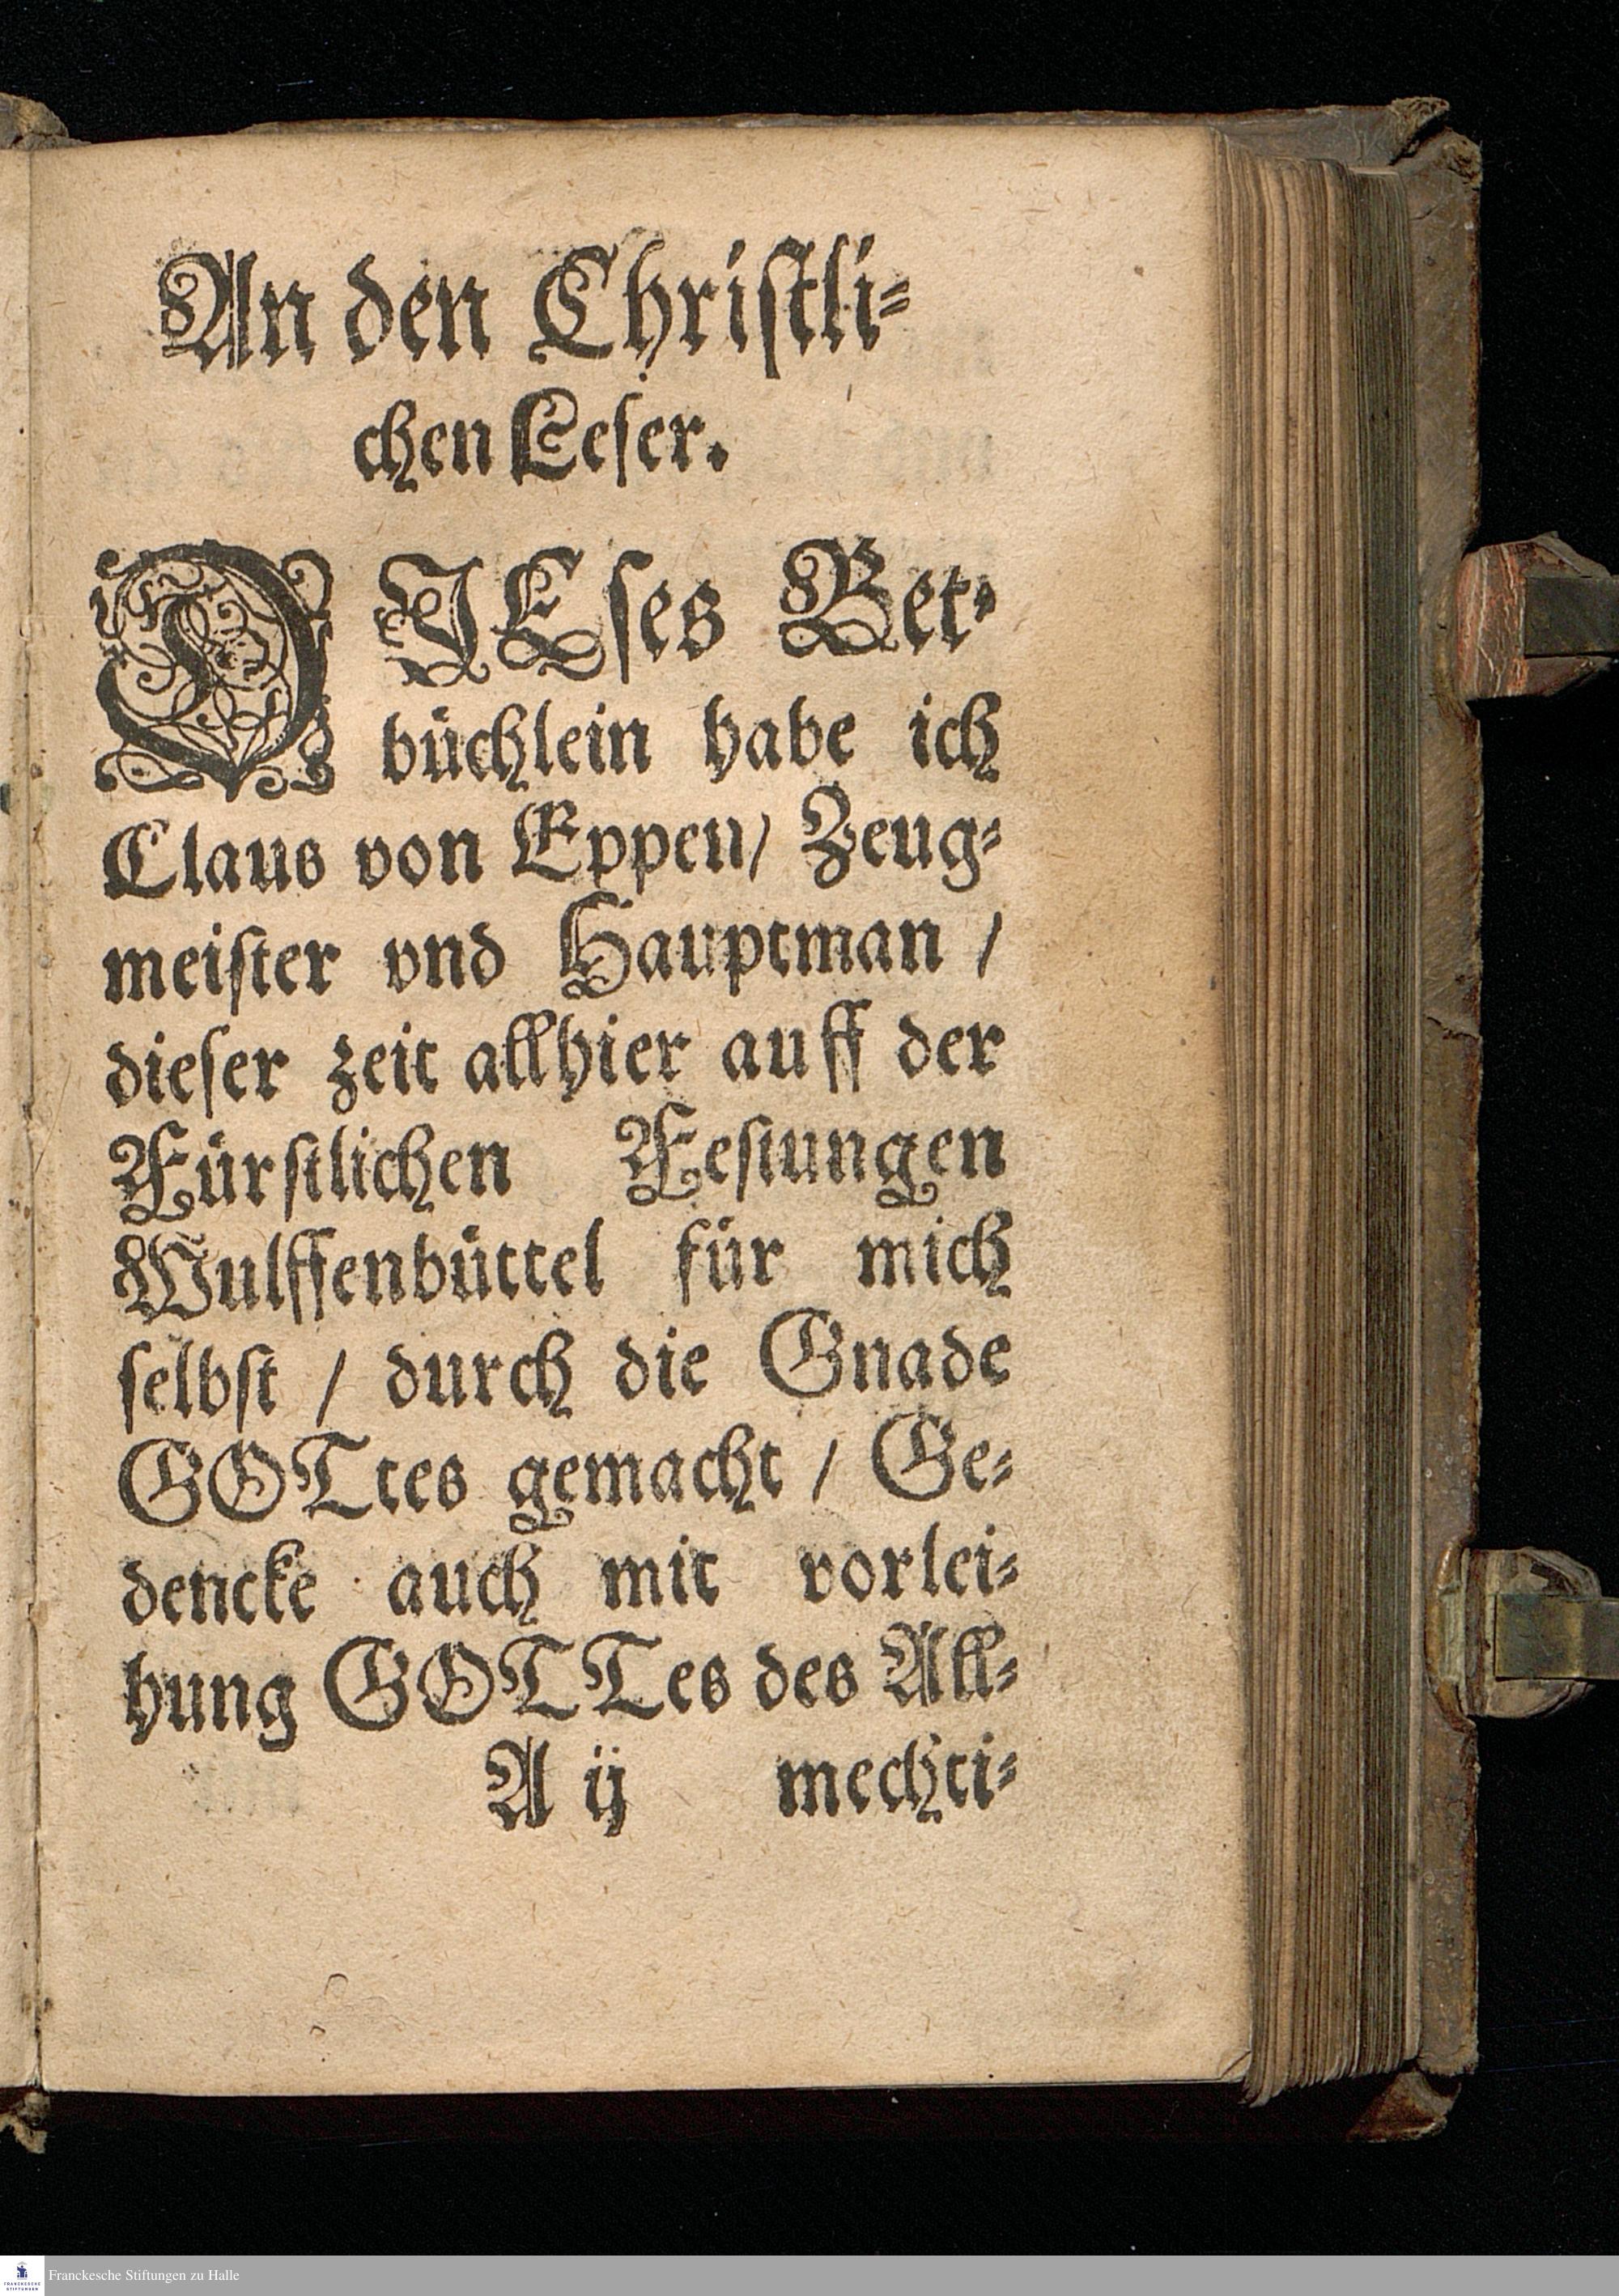 An den Christli⸗
chen Leser.
DJEses Bet⸗
büchlein habe ich
Claus von Eppen/ Zeug⸗
meister vnd Hauptman /
dieser zeit allhier auff der
Fürstlichen Festungen
Wulffenbüttel für mich
selbst / durch die Gnade
GOTtes gemacht / Ge⸗
dencke auch mit vorlei⸗
hung GOTTes des All⸗
A ij mechti⸗
Franckesche Stiftungen zu Halle
FRANCKESCHE
STIFTUNGEN